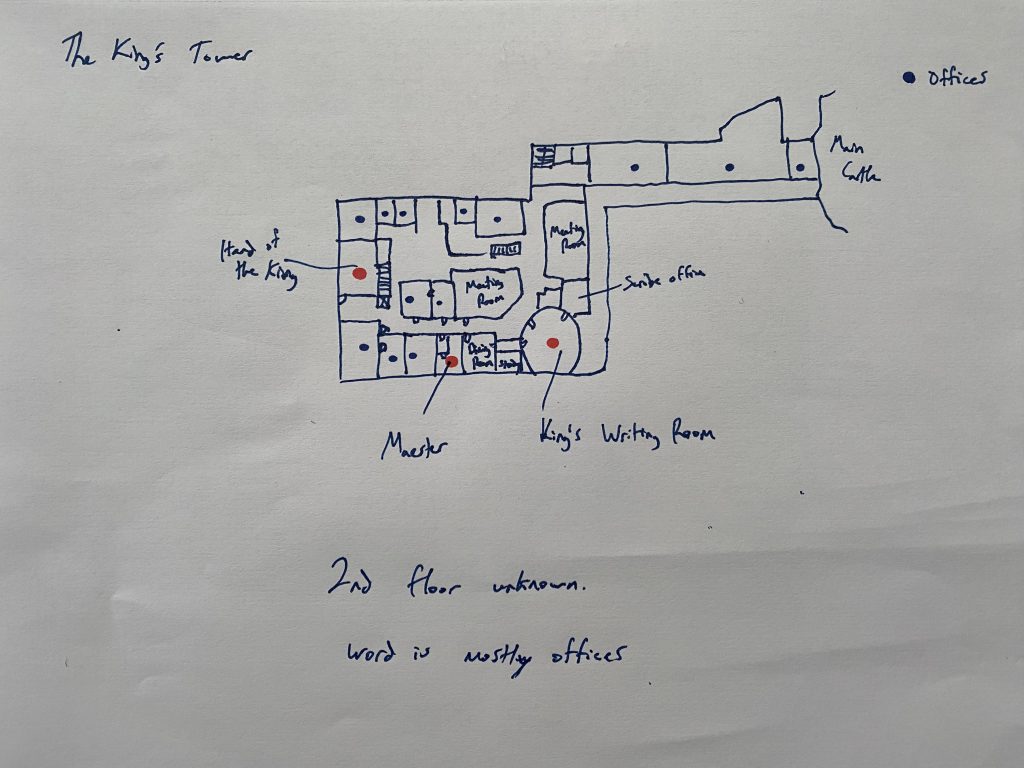 The King's Tower
Offices
Main
Castle
Hand of
the King
Meeting
Room
Meeting
Room
Scribe office
Dining
Room
Study
Maester
King's Writing Room
2nd floor unknown.
word is mostly offices